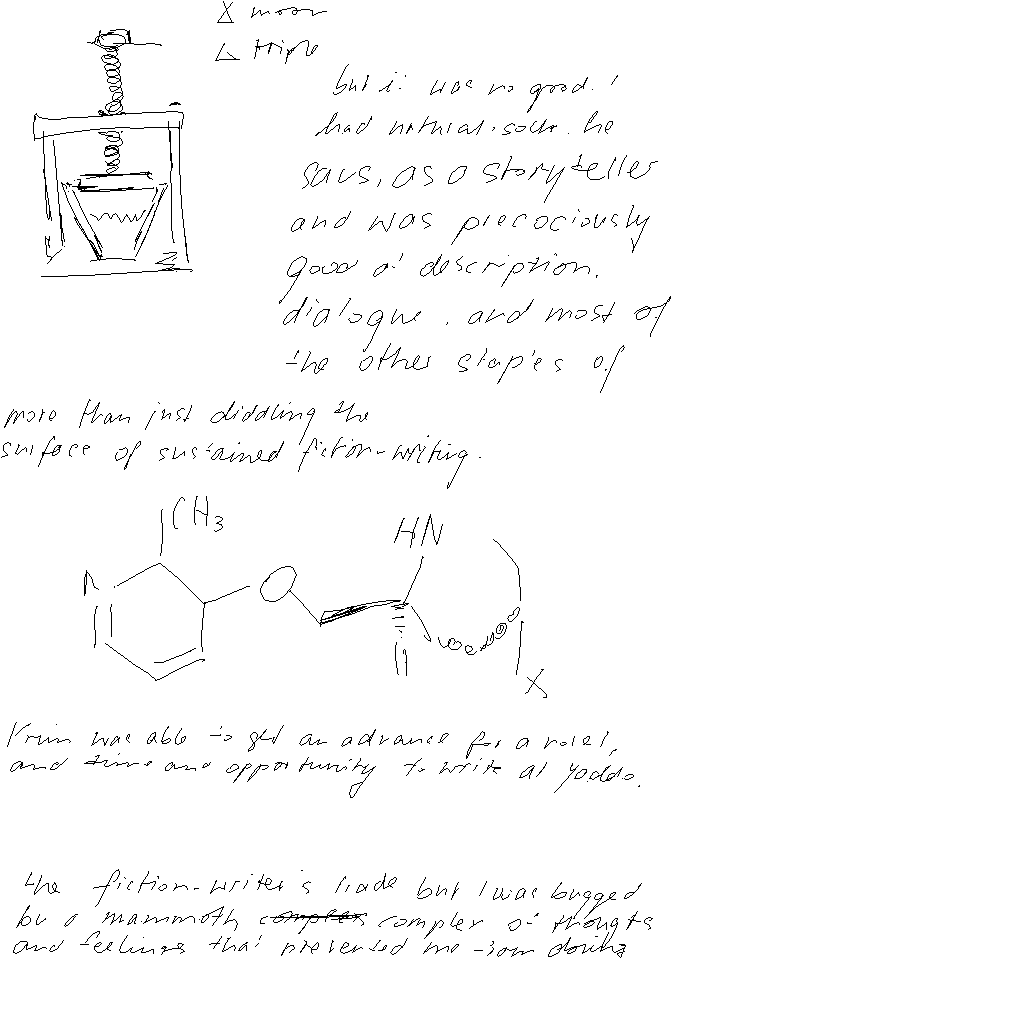 X moor
triple
but it was no good. I
had natural, he
says, as a storyteller
and was precociously
good at description,
dialogue, and most of
the other staples of
more than just diddling the
surface of sustained fiction-writing.
CH3
N
O
HN
X
Krim was able to get an advance for a novel,
and time and opportunity to write at Yaddo.
the fiction-writer's trade but I was bugged
by a mammoth complex of thougts
and feelings that prevented me from doing